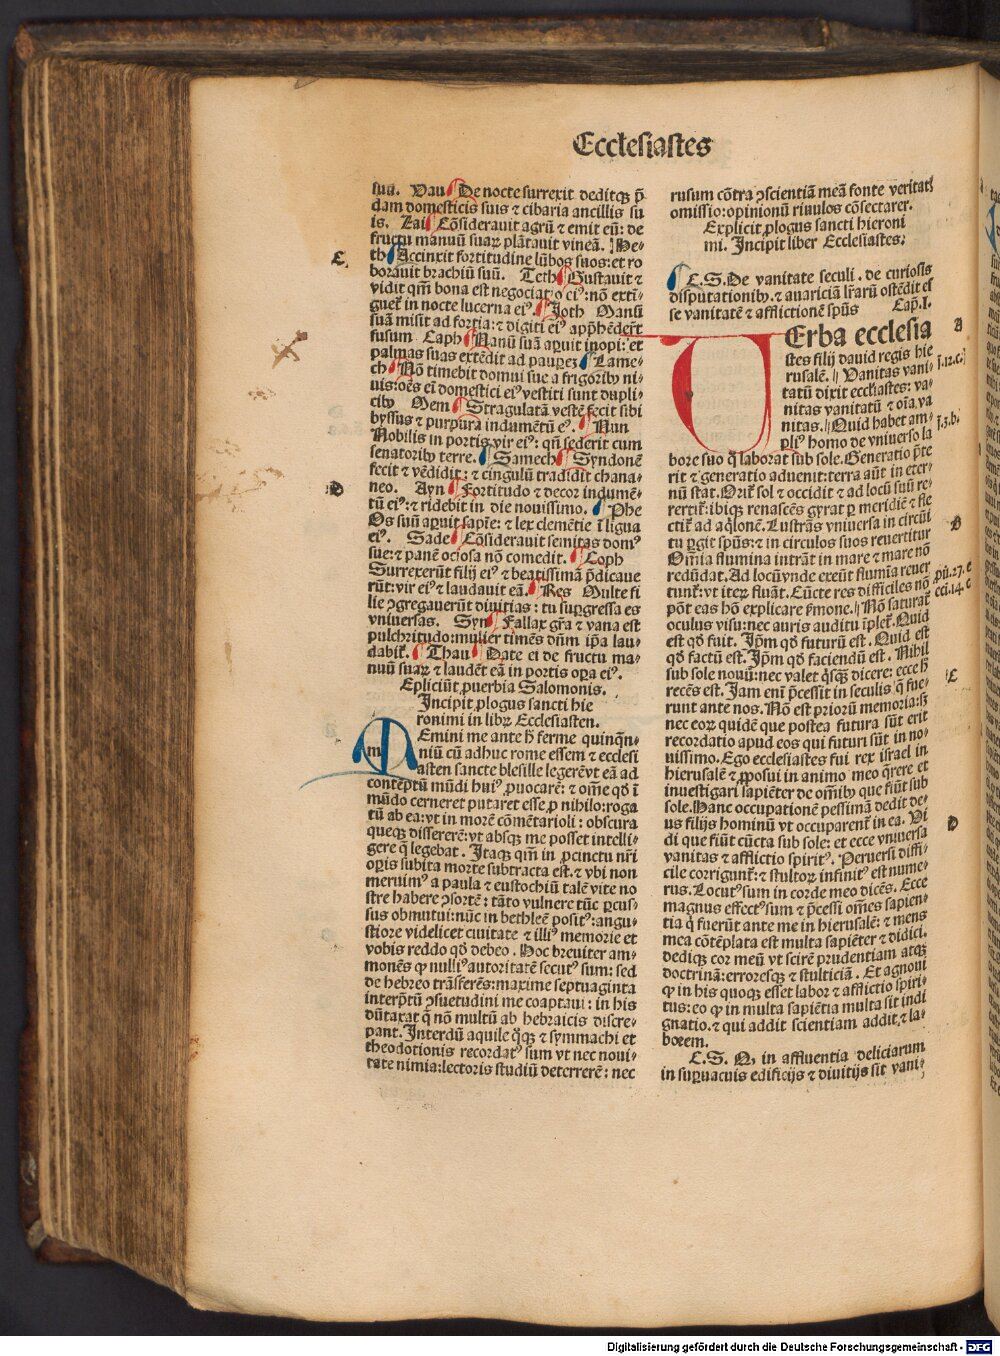 Ecclesiastes
suū. Uau De nocte surrexit deditqꝫ p̄
dam domesticis suis ⁊ cibaria ancillis su
is. Zai Cōsiderauit agrū ⁊ emit eū: de
fructu manuū suaꝝ plātauit vineā. He⸗
th Accinxit fortitudine lūbos suos: et ro
borauit brachiū suū. Teth Gustauit ⁊
vidit qm̄ bona est negociatio eiꝰ: nō exti⸗
guet᷑ in nocte lucerna eiꝰ. Joth Manū
suā misit ad fortia: ⁊ digiti eiꝰ app̄hēdert̄
fusum Caph Manū suā aꝑuit inopi: et
palmas suas extēdit ad pauꝑeꝫ Lame⸗
ch Nō timebit domui sue a frigoribꝰ ni⸗
uis: oēs em̄ domestici eiꝰ vestiti sunt dupli⸗
cibꝰ Mem Stragulatā vestē fecit sibi
byssus ⁊ purpura indumētū eꝰ. Nun
Nobilis in portis vir eiꝰ: qn̄ sederit cum
senatoribꝰ terre. Samech Syndonē
fecit ⁊ vēdidit: ⁊ cingulū tradidit chana⸗
neo. Ayn Fortitudo ⁊ decor indumē⸗
tū eiꝰ: ⁊ ridebit in die nouissimo. Phe
Os suū aꝑuit sapīe: ⁊ lex clemētie ī ligua
eiꝰ. Sade Cōsiderauit semitas domꝰ
sue: ⁊ panē ociosa nō comedit. Coph
Surrexerūt filij eiꝰ ⁊ beatissimā p̄dicaue
rūt: vir eiꝰ ⁊ laudauit eā. Res Multe fi
lie ꝯgregauerūt diuitias: tu suꝑgressa es
vniuersas. Syn Fallax gr̄a ⁊ vana est
pulchritudo: mulier timēs dūm ip̄a lau⸗
dabit᷑. Thau Date ei de fructu ma⸗
nuū suaꝝ ⁊ laudēt eā in portis oꝑa eiꝰ.
Epliciūt ꝓuerbia Salomonis.
Incipit ꝓlogus sancti hie
ronimi in libꝝ Ecclesiasten.
m
Emini me ante h̄ ferme quinqn̄⸗
niū cū adhuc rome essem ⁊ ecclesi
asten sancte blesille legerēvt eā ad
cōtēptū mūdi huiꝰ ꝓuocarē: ⁊ om̄e qd̄ ī
mūdo cerneret putaret esse ꝓ nihilo: roga
tū ab ea: vt in morē cōmētarioli: obscura
queqꝫ dissererē: vt absqꝫ me posset intelli⸗
gere q̄ legebat. Itaqꝫ qm̄ in ꝓcinctu nr̄i
oꝑis subita morte subtracta est. ⁊ vbi non
meruimꝰ a paula ⁊ eustochiū talē vite no
stre habere ꝯsortē: tāto vulnere tūc ꝑcus⸗
sus obmutui: nūc in bethleē positꝰ: angu⸗
stiore videlicet ciuitate ⁊ illiꝰ memorie et
vobis reddo qd̄ debeo. Hoc breuiter am⸗
monēs ꝙ nulliꝰ autoritatē secutꝰ sum: sed
de hebreo trāsferēs: maxime septuaginta
interp̄tū ꝯsuetudini me coaptaui: in his
dūtaxat q̄ nō multū ab hebraicis discre⸗
pant. Interdū aquile q̄qꝫ ⁊ symmachi et
theodotionis recordatꝰ sum vt nec noui⸗
tate nimia: lectoris studiū deterrerē: nec
C
D
rusum cōtra ꝯscientiā meā fonte veritat᷑
omissio: opinionū riuulos cōsectarer.
Explicit ꝓlogus sancti hieroni
mi. Incipit liber Ecclesiastes:
C.S. De vanitate seculi. de curiosis
disputationibꝰ. ⁊ auariciā lr̄arū ostēdit es
se vanitatē ⁊ afflictionē spūs Cap. I.
Erba ecclesia
stes filij dauid regis hie
rusalē. || Vanitas vani⸗
tatū dixit eccl̄iastes: va⸗
nitas vanitatū ⁊ oīa va
nitas. || Quid habet am⸗
pliꝰ homo de vniuerso la
bore suo q̄ laborat sub sole. Generatio p̄te
rit ⁊ generatio aduenit: terra aūt in eter⸗
nū stat. Orit᷑ sol ⁊ occidit ⁊ ad locū suū re⸗
rertit᷑: ibiqꝫ renascēs gyrat ꝑ meridiē ⁊ fle
ctit᷑ ad aq̇lonē. Lustrās vniuersa in circūi
tu ꝑgit spūs: ⁊ in circulos suos reuertitur
Omīa flumina intrāt in mare ⁊ mare nō
redūdat. Ad locū vnde exeūt flumīa reuer
tunt᷑: vt iteꝝ fluāt. Cūcte res difficiles nō
pōt eas hō explicare ẜmone. || Nō saturat᷑
oculus visu: nec auris auditu īplet᷑. Quid
est qd̄ fuit. Ip̄m qd̄ futurū est. Quid est
qd̄ factū est. Ip̄m qd̄ faciendū est. Nihil
sub sole nouū: nec valet q̇sqꝫ dicere: ecce h̄
recēs est. Jam enī p̄cessit in seculis q̄ fue⸗
runt ante nos. Nō est prioru memoria: sꝫ
nec eoꝝ quidē que postea futura sūt erit
recordatio apud eos qui futuri sūt in no⸗
uissimo. Ego ecclesiastes fui rex israel in
hierusalē ⁊ ꝓposui in animo meo q̄rere et
inuestigari sapiēter de om̄ibꝰ que fiūt sub
sole. Hanc occupationē pessimā dedit de⸗
us filijs hominū vt occuparent᷑ in ea. Vi
di que fiūt cūcta sub sole: et ecce vniuersa
vanitas ⁊ afflictio spiritꝰ. Peruersi diffi⸗
cile corrigunt᷑: ⁊ stultoꝝ infinitꝰ est nume⸗
rus. Locutꝰ sum in corde meo dicēs. Ecce
magnus effectꝰ sum ⁊ p̄cessi om̄es sapien⸗
tia q̇ fuerūt ante me in hierusalē: ⁊ mens
mea cōtēplata est multa sapiēter ⁊ didici.
dediqꝫ cor meū vt scirē prudentiam atqꝫ
doctrinā: erroresqꝫ ⁊ stulticiā. Et agnoui
ꝙ in his quoqꝫ esset labor ⁊ afflictio spiri⸗
tus: eo ꝙ in multa sapiētia multa sit indi
gnatio. ⁊ qui addit scientiam addit ⁊ la⸗
borem.
C.S. Q in affluentia deliciarum
in suꝑuacuis edificijs ⁊ diuitijs sit vani⸗
A
j.12.c.
j.3.b.
B
ꝓū.27.c
eci.14.c
C
D
Digitalisierung gefördert durch die Deutsche Forschungsgemeinschaft - DFG